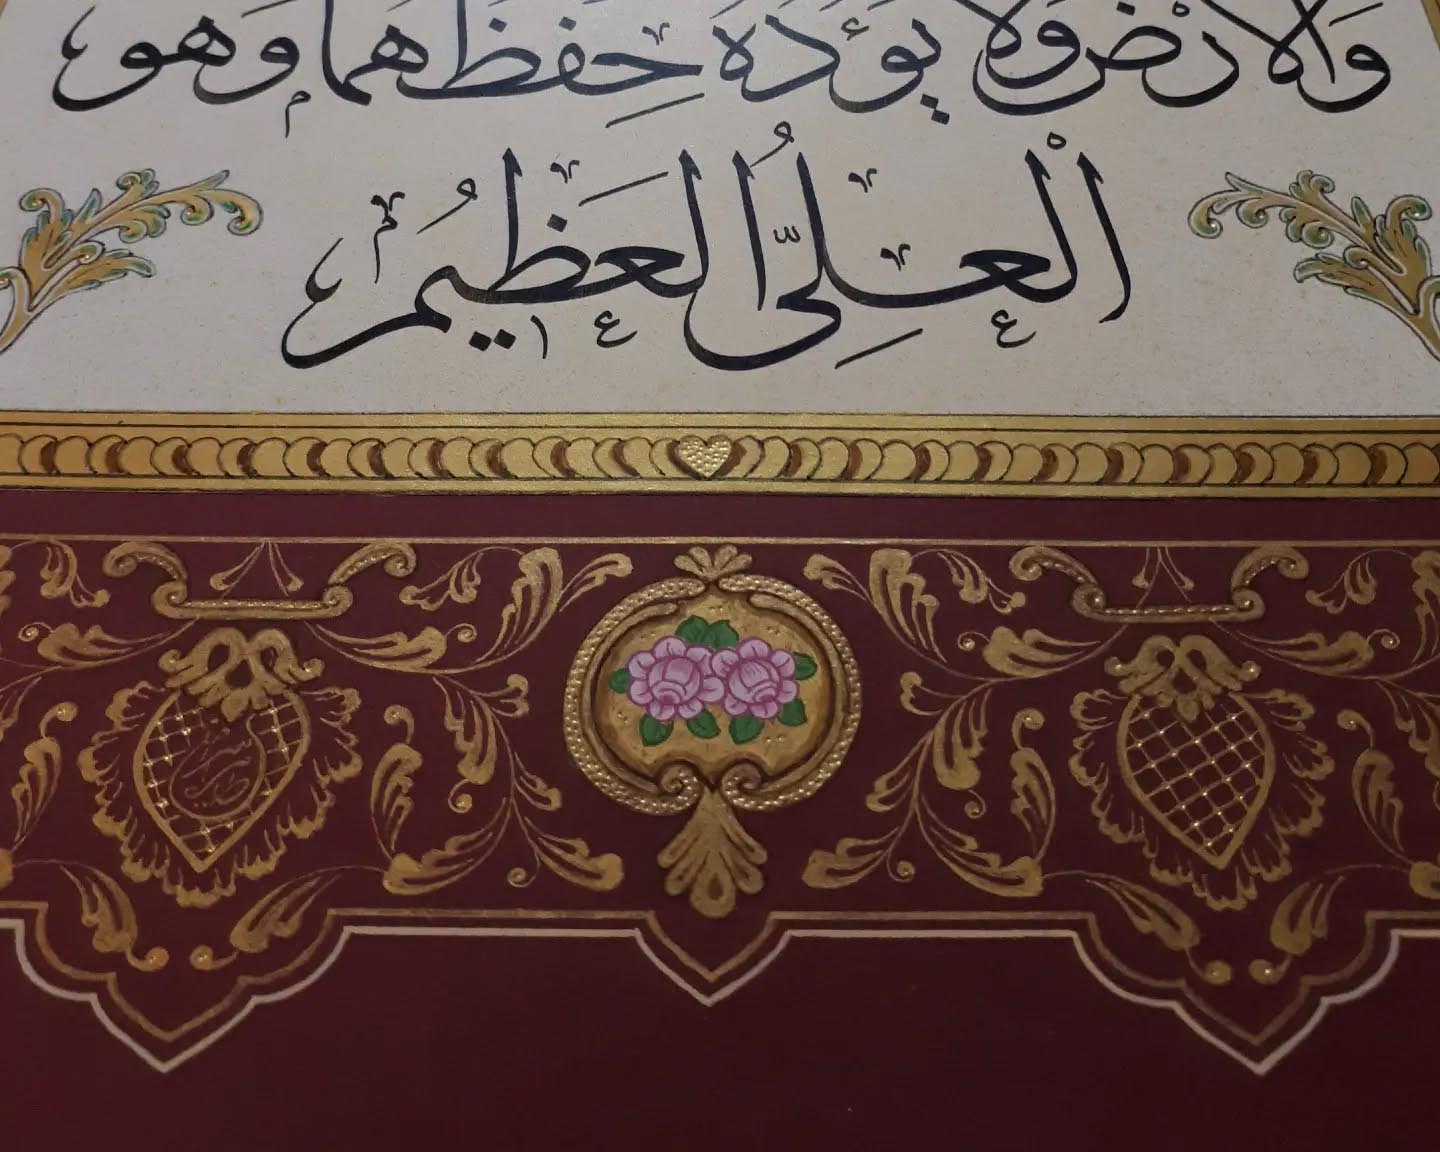 وَالْاَرْضَ وَلَا يَؤُدُهُ حِفْظُهُمَا وَهُوَ
الْعَلِيُّ الْعَظِيمُ